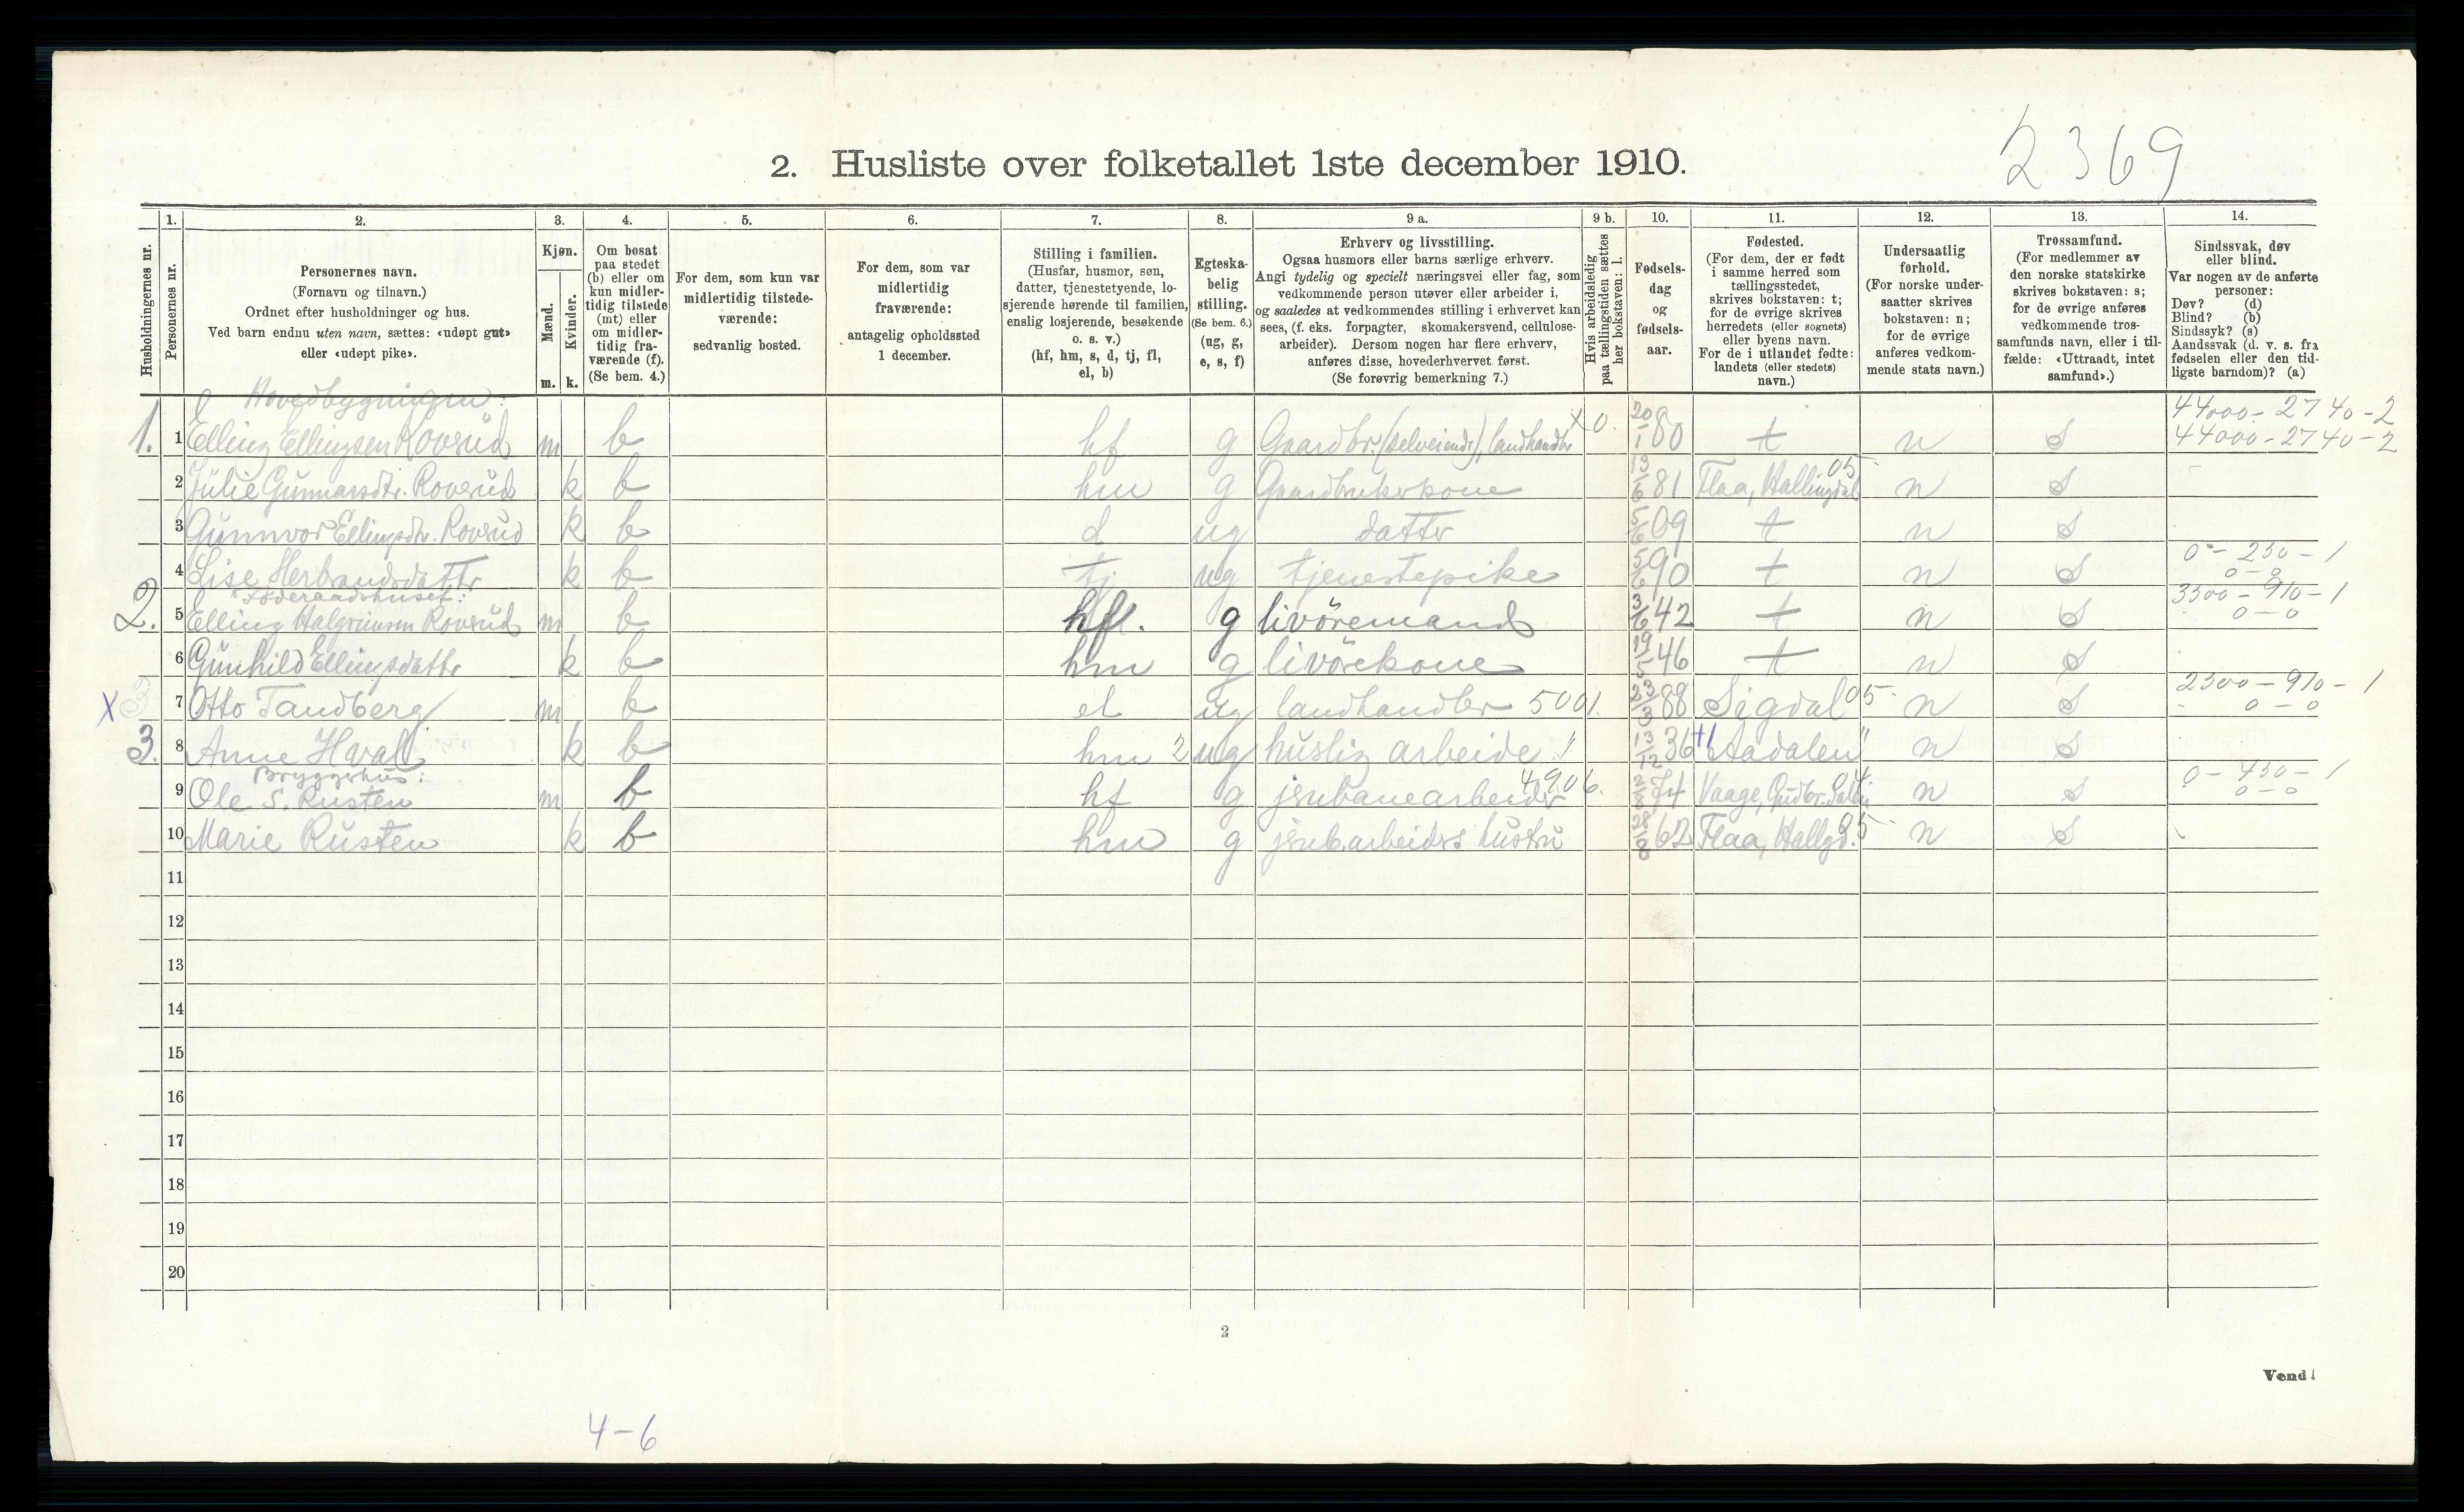 2369
2. Husliste over folketallet 1ste december 1910.
Husholdningernes nr.
1. Personernes nr.
2. Personernes navn.
(Fornavn og tilnavn.)
Ordnet efter husholdninger og hus.
Ved barn endnu uten navn, sættes: «udøpt gut»
eller «udøpt pike».
3. Kjøn.
Mænd. Kvinder.
m. k.
4. Om bosat
paa stedet
(b) eller om
kun midler-
tidig tilstede
(mt) eller
om midler-
tidig fra-
værende (f).
(Se bem. 4.)
5. For dem, som kun var
midlertidig tilstede-
værende:
sedvanlig bosted.
6. For dem, som var
midlertidig
fraværende:
antagelig opholdssted
1 december.
7. Stilling i familien.
(Husfar, husmor, søn,
datter, tjenestetyende, lo-
sjerende hørende til familien,
enslig losjerende, besøkende
o. s. v.)
(hf, hm, s, d, tj, fl,
el, b)
8. Egteska-
belig
stilling.
(Se bem. 6.)
(ug, g,
e, s, f)
9 a. Erhverv og livsstilling.
Ogsaa husmors eller barns særlige erhverv.
Angi tydelig og specielt næringsvei eller fag, som
vedkommende person utøver eller arbeider i,
og saaledes at vedkommendes stilling i erhvervet kan
sees, (f. eks. forpagter, skomakersvend, cellulose-
arbeider). Dersom nogen har flere erhverv,
anføres disse, hovederhvervet først.
(Se forøvrig bemerkning 7.)
9 b. Hvis arbeidsledig
paa tællingstiden sættes
her bokstaven: l.
10. Fødsels-
dag
og
fødsels-
aar.
11. Fødested.
(For dem, der er født
i samme herred som
tællingsstedet,
skrives bokstaven: t;
for de øvrige skrives
herredets (eller sognets)
eller byens navn.
For de i utlandet fødte:
landets (eller stedets)
navn.)
12. Undersaatlig
forhold.
(For norske under-
saatter skrives
bokstaven: n;
for de øvrige
anføres vedkom-
mende stats navn.)
13. Trossamfund.
(For medlemmer av
den norske statskirke
skrives bokstaven: s;
for de øvrige anføres
vedkommende tros-
samfunds navn, eller i til-
fælde: «Uttraadt, intet
samfund».)
14. Sindssvak, døv
eller blind.
Var nogen av de anførte
personer:
Døv? (d)
Blind? (b)
Sindssyk? (s)
Aandssvak (d. v. s. fra
fødselen eller den tid-
ligste barndom)? (a)
Hovedbygningen: 44000-2740-2
1. 1 Elling Ellingsen Roverud m b hf g Gaardbr. (selveiende), landhandler X0. 20/1 80 t n s 44000-2740-2
2 Julie Gunnarsdtr. Roverud k b hm g Gaardbrukerkone 13/6 81 Flaa, Hallingdal 05 n s
3 Gunnvor Ellingsdtr. Roverud k b d ug datter 5/6 09 t n s
4 Lise Herbrandsdatter k b tj ug tjenestepike 5/6 90 t n s 0-230-1 0-0
Föderaadshuset:
2. 5 Elling Halgrimsen Roverud m b hf. g livöremand 3/6 42 t n s 3300-910-1 0-0
6 Gunhild Ellingsdatter k b hm g livörekone 19/5 46 t n s
X 3 7 Otto Tandberg m b el ug landhandler 5001. 23/3 88 Sigdal 05 n s 2300-910-1 0-0
3. 8 Anne Hval k b hm 2 ug huslig arbeide 13/12 36 Aadalen n s
Bryggerhus:
9 Ole S. Rusten m b hf g jernbanearbeider 4906. 2/8 74 Vaage, Gudbr.dalen 04. n s 0-430-1 0-0
10 Marie Rusten k b hm g jernb.arbeiders hustru 28/8 62 Flaa, Hallgd. 05 n s
11
12
13
14
15
16
17
18
19
20
2
Vend!
4-6